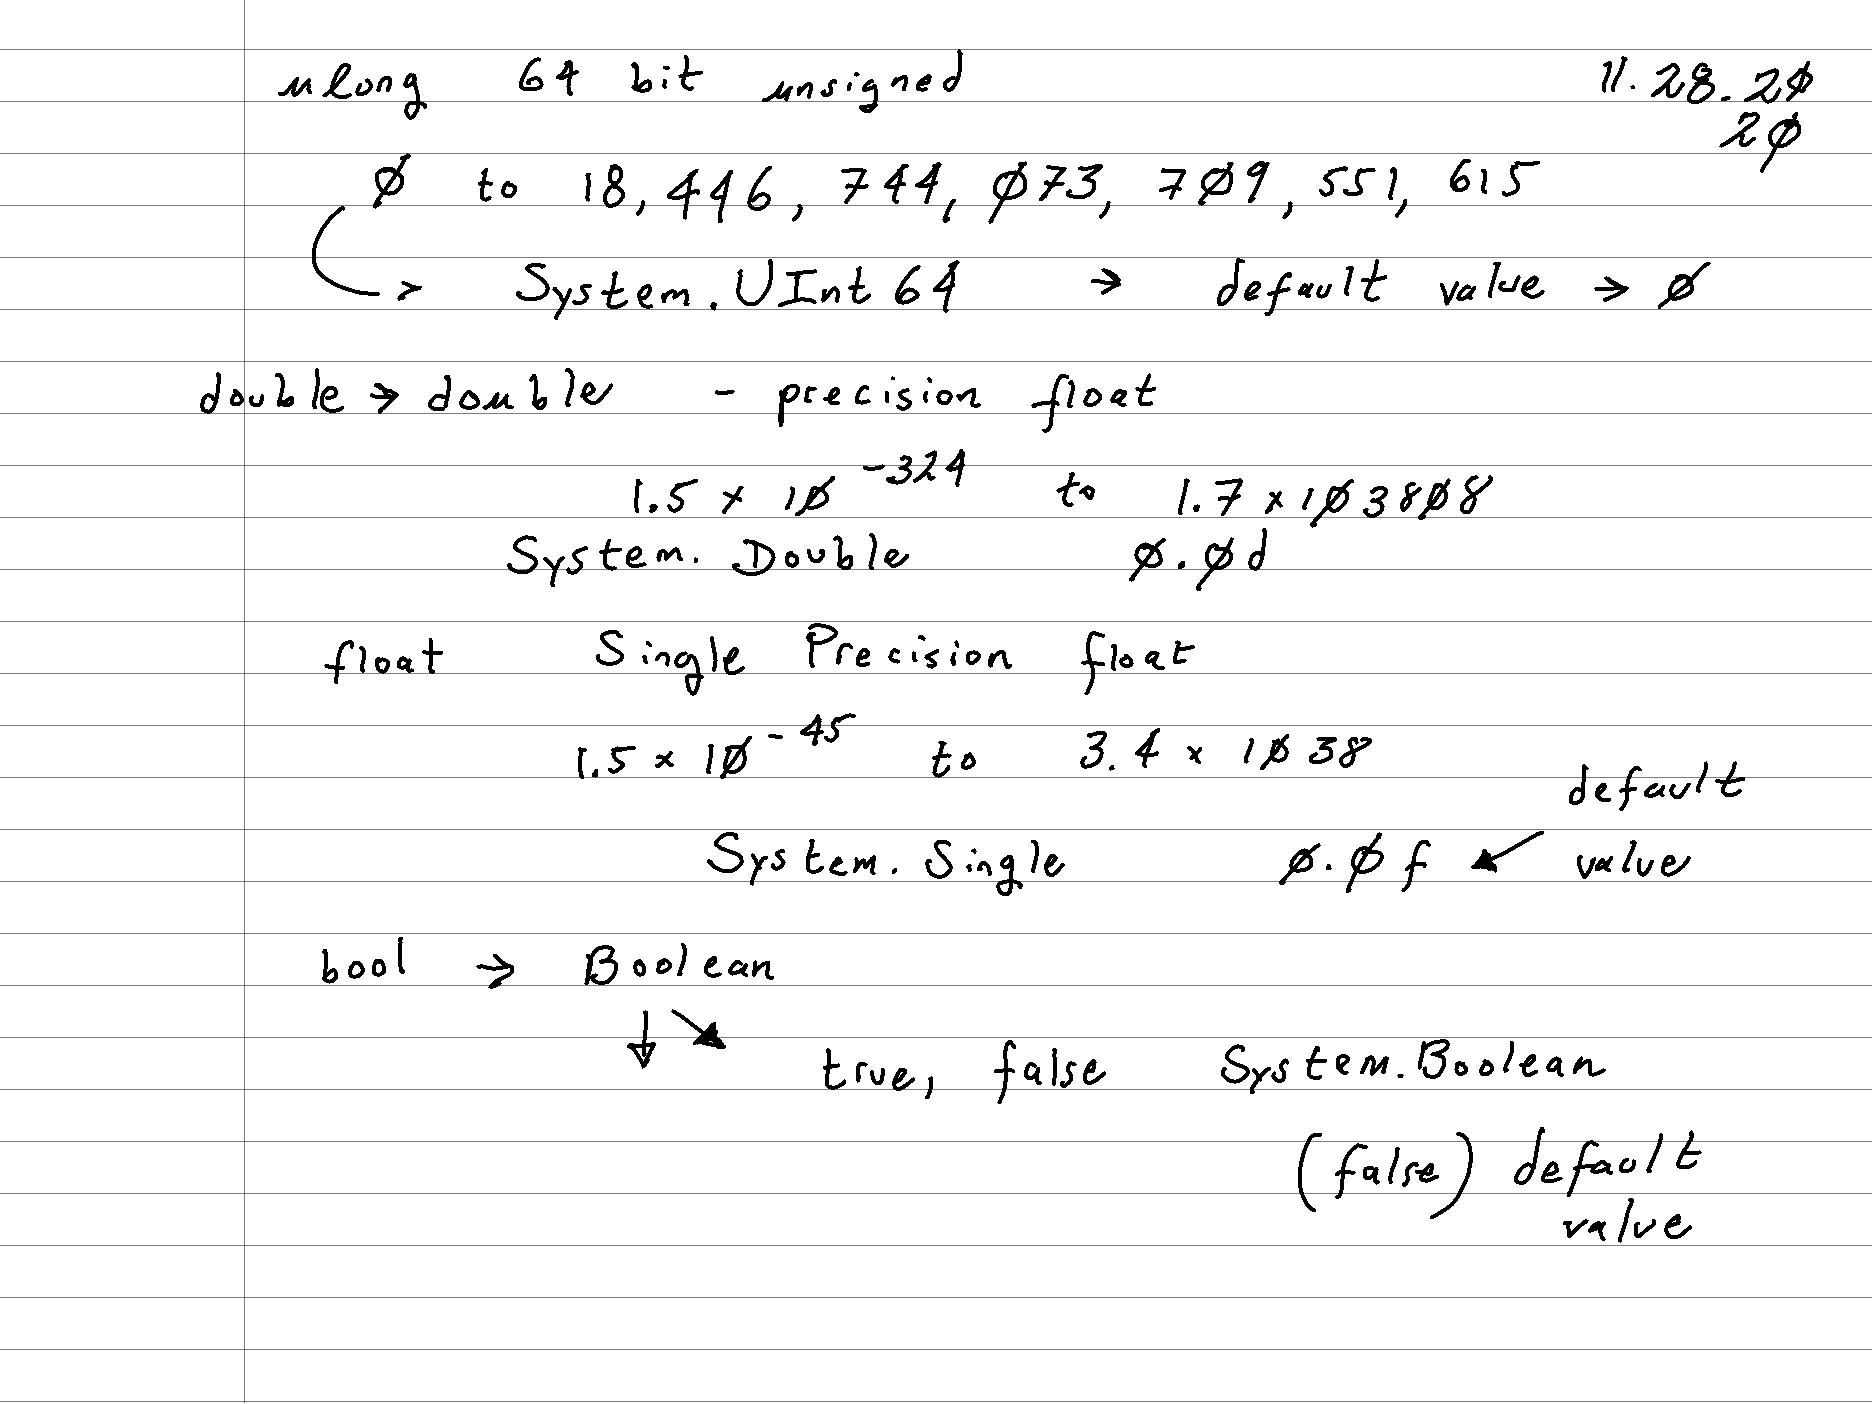 ulong 64 bit unsigned 11.28.20
20
0 to 18,446,744,073,709,551,615
System.UInt64 → default value → 0
double → double - precision float
1.5 x 10 -324 to 1.7 x 103808
System. Double 0.0d
float Single Precision float
1.5 x 10 -45 to 3.4 x 1038
default
System. Single 0.0f value
bool → Boolean
true, false System.Boolean
(false) default
value